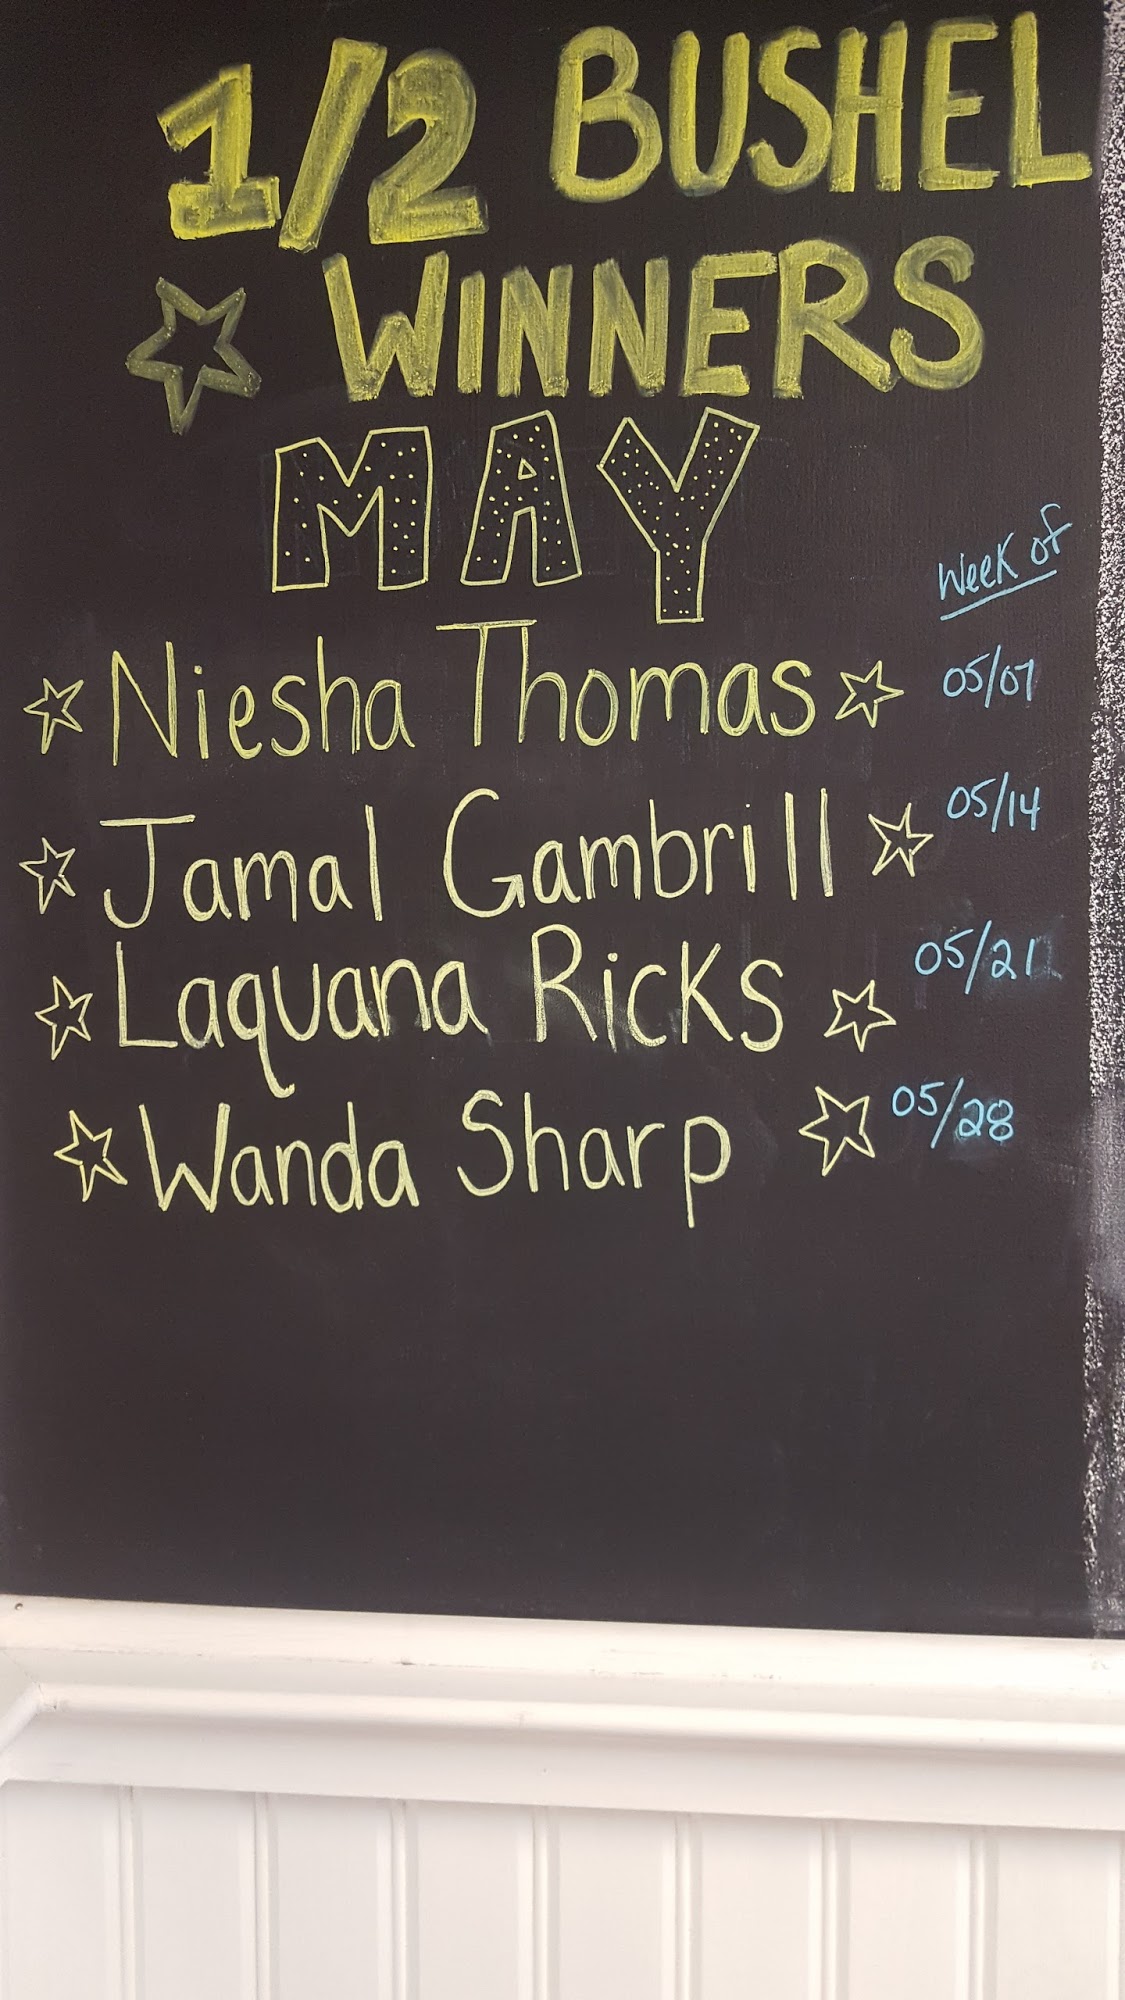 1/2 BUSHEL
WINNERS
MAY
Week of
Niesha Thomas 05/07
Jamal Gambrill 05/14
Laquana Ricks 05/21
Wanda Sharp 05/28